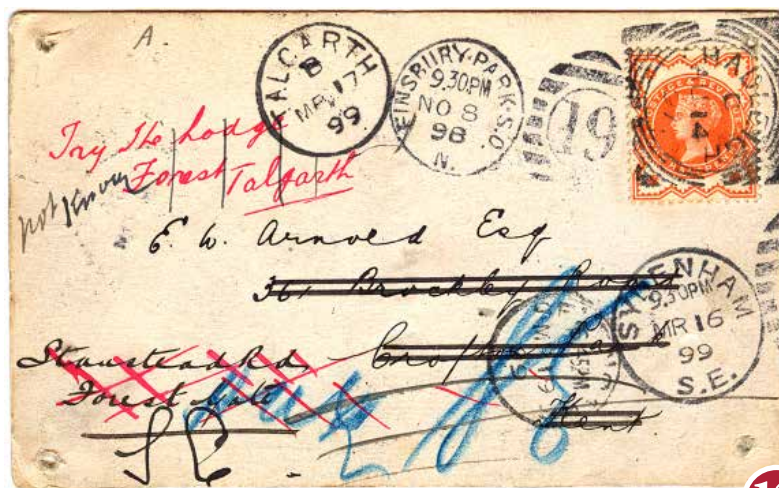 A.
TALGARTH
B
MR 17
99
FINSBURY-PARK-S.O.
9.30PM
NO 8
98
N.
19
Try The Lodge
Forest Talgarth
not Known
E. W. Arnold Esq
361 Brockley Road
Stanstead Rd. Crofton Park
Forest Gate
Kent.
S E
SYDENHAM
9.30PM
MR 16
99
S.E.